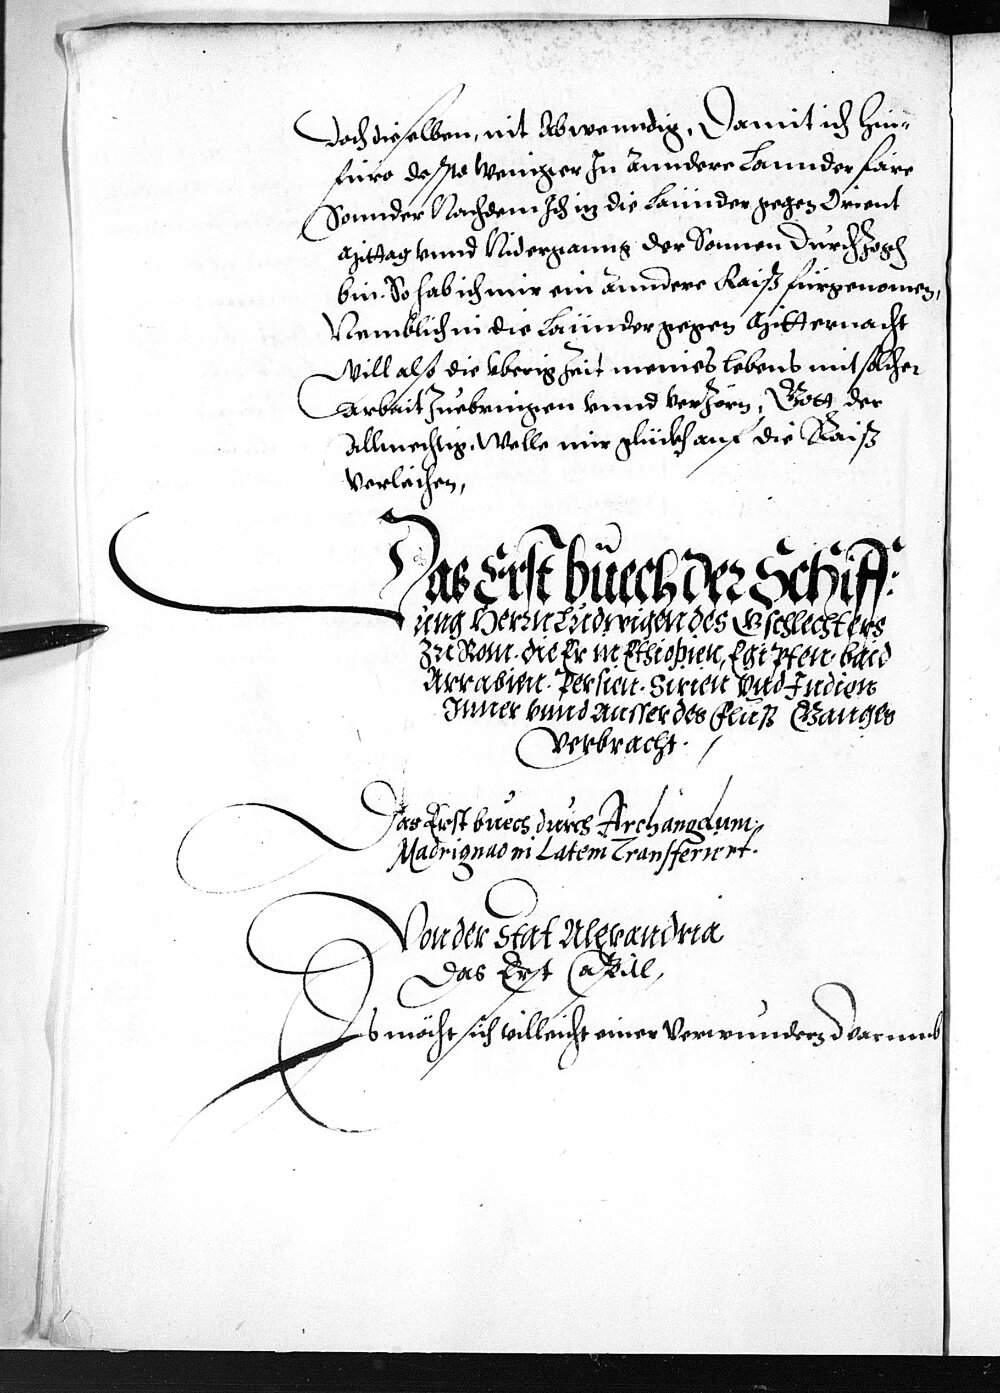 doch dieselben, nit Abwenndig, Damit ich hin-
füro desto Weniger In Anndere Lannder faire
Sonnder Nachdem Ich in die Lännder gegen Orient
Mittag vnnd Niderganng der Sonnen durchzogen
bin. So hab ich mir ein Anndere Raiß fürgenomen,
Nemblich in die Lännder gegen Mitternacht
Will also die vberig Zeit meines lebens mit solcher
Arbait Zuebringen vnnd verZörn, Gott der
Allmechtig, Welle mir glückh auf die Raiß
verleichen,
Das Erst buech der Schiff:
ung Herrn Ludwigen des Gschlechters
Zu Rom. die Er in Ethiopien, Egipten. baid
Arrabien. Persien. Sirien Vnd Indien
Inner vnnd Ausser des Fluß Ganges
verbracht.
Das Erst buech durch Archangelum:
Madrignao in Latein Transferiert.
Von der Stat Alexandria
Das Erst Capitl,
Es möcht sich villeicht einer verwundern darumb